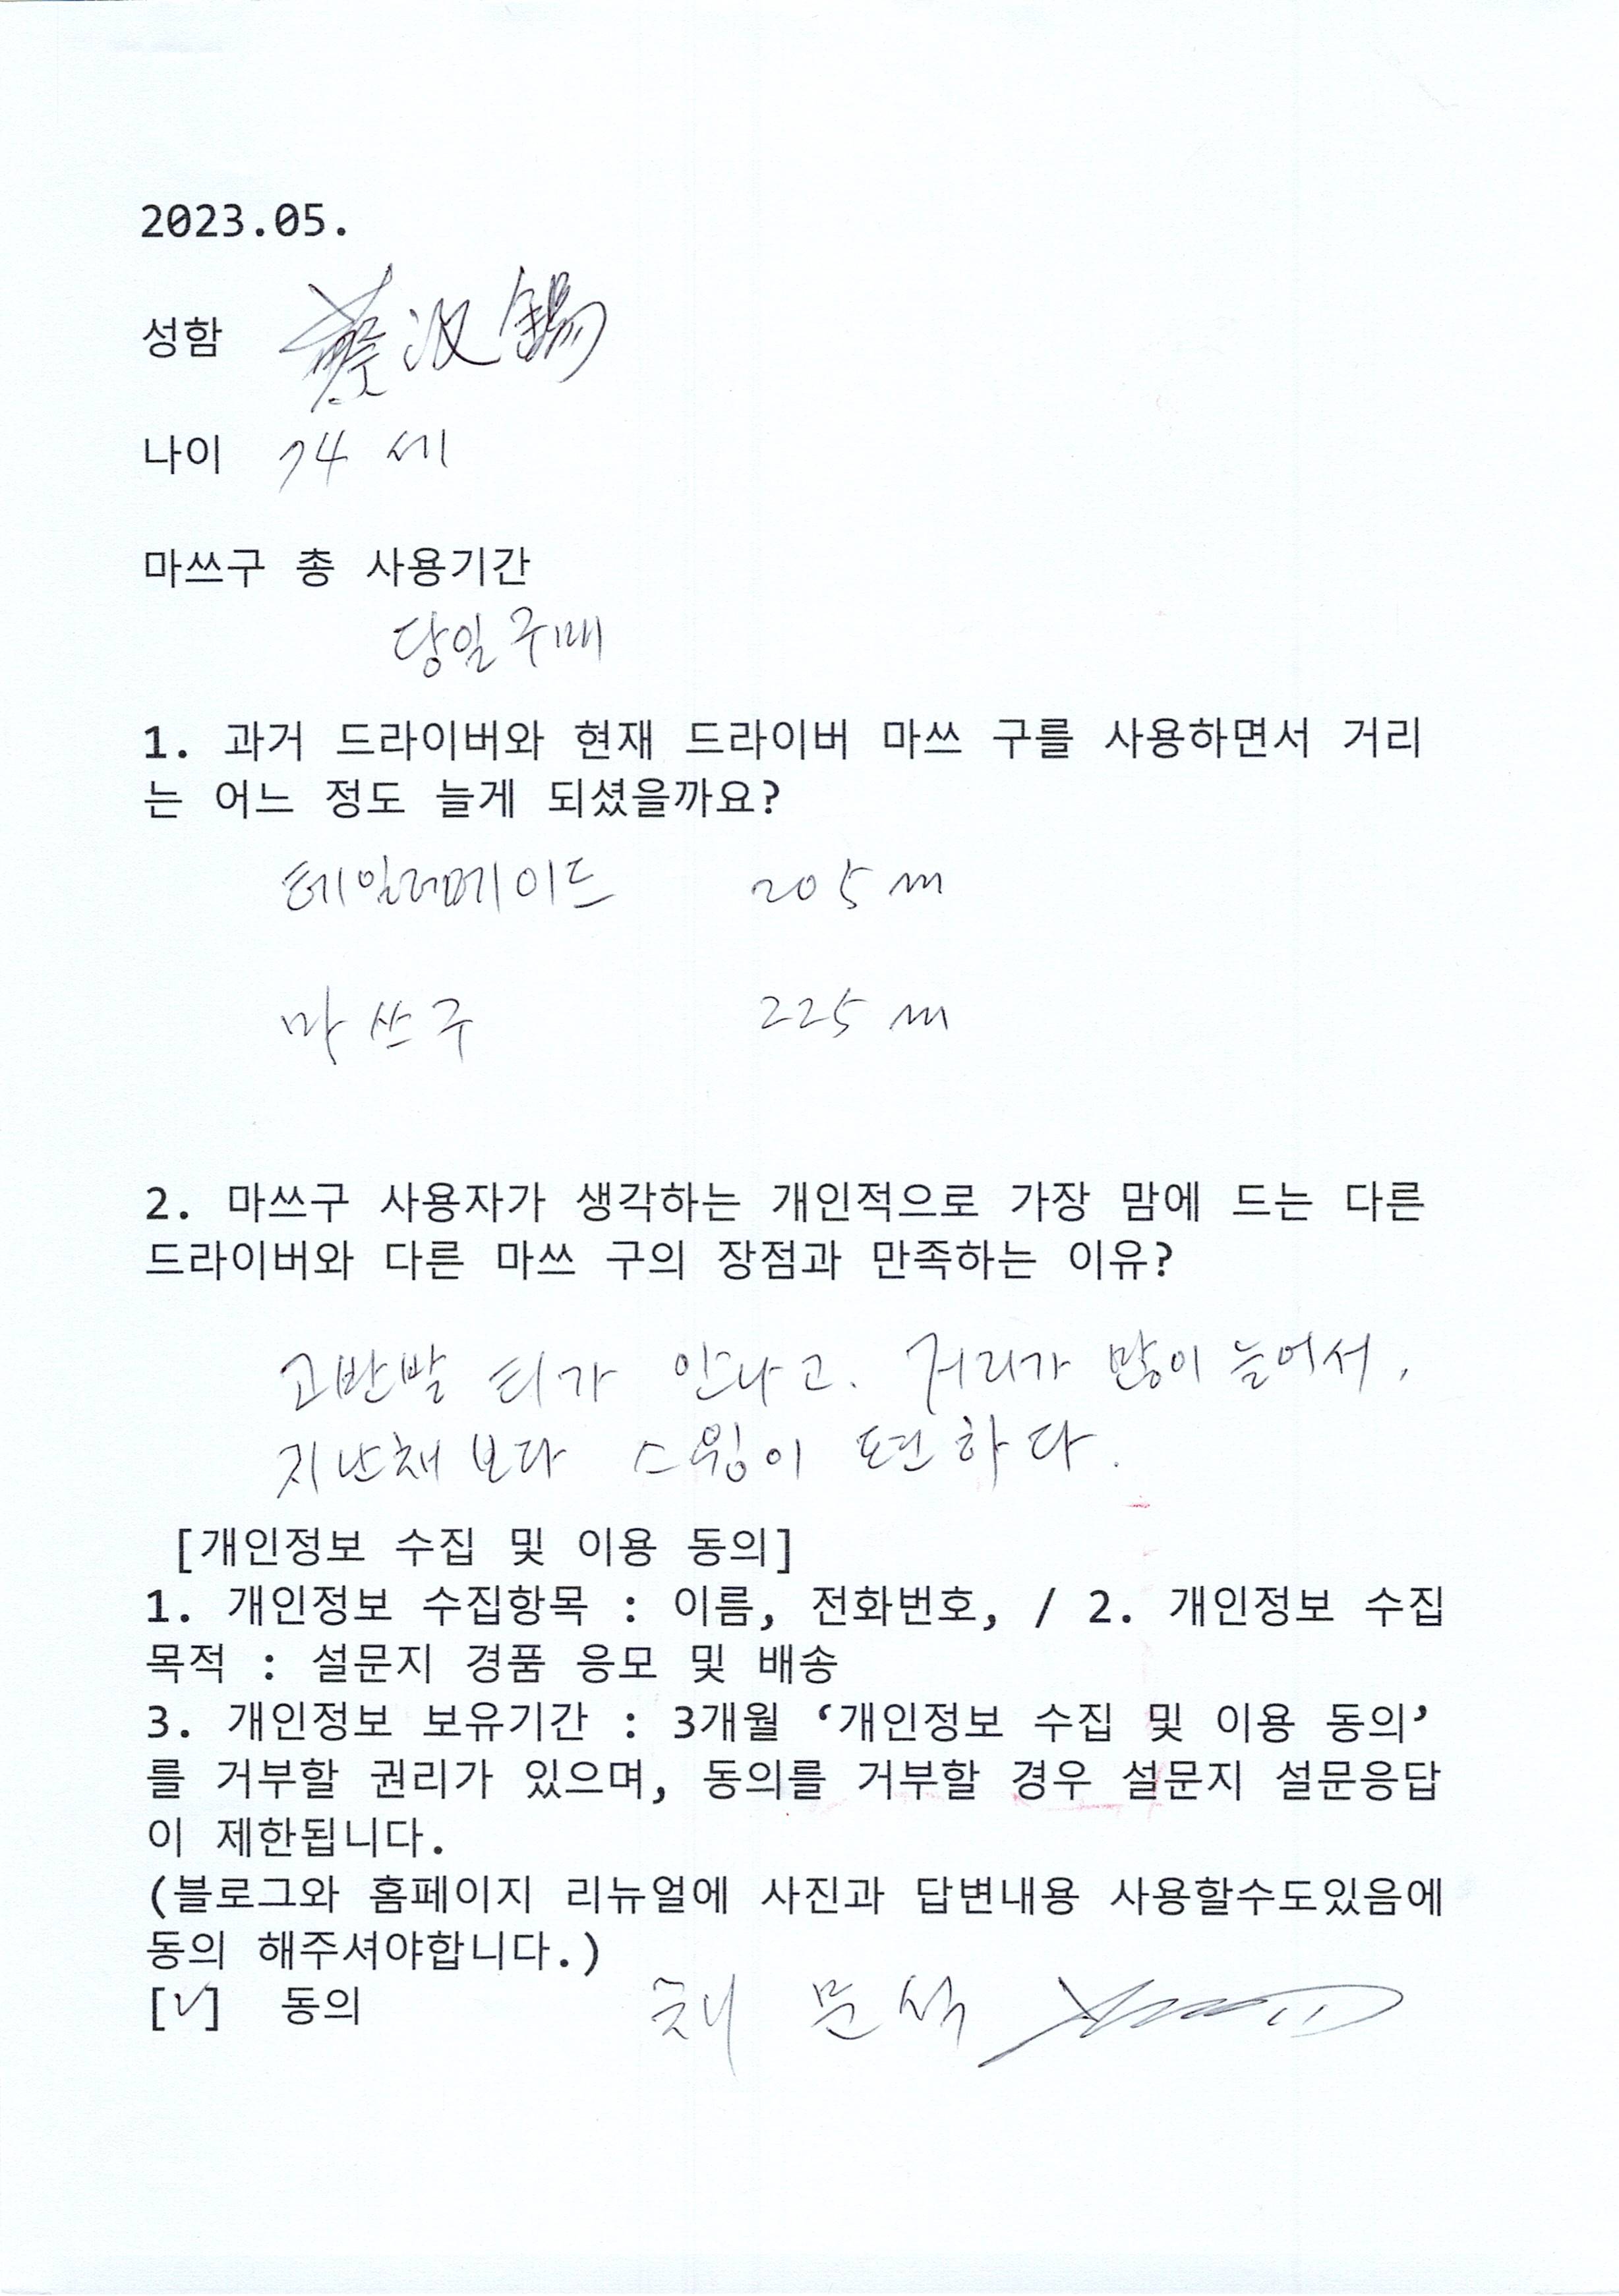 2023.05.
성함 蔡汶錫
나이 74 세
마쓰구 총 사용기간
당일구매
1. 과거 드라이버와 현재 드라이버 마쓰 구를 사용하면서 거리
는 어느 정도 늘게 되셨을까요?
테일러메이드 205 m
마쓰구 225 m
2. 마쓰구 사용자가 생각하는 개인적으로 가장 맘에 드는 다른
드라이버와 다른 마쓰 구의 장점과 만족하는 이유?
고반발 티가 안나고. 거리가 많이 늘어서,
지난채 보다 스윙이 편하다.
[개인정보 수집 및 이용 동의]
1. 개인정보 수집항목 : 이름, 전화번호, / 2. 개인정보 수집
목적 : 설문지 경품 응모 및 배송
3. 개인정보 보유기간 : 3개월 ‘개인정보 수집 및 이용 동의’
를 거부할 권리가 있으며, 동의를 거부할 경우 설문지 설문응답
이 제한됩니다.
(블로그와 홈페이지 리뉴얼에 사진과 답변내용 사용할수도있음에
동의 해주셔야합니다.)
[✓] 동의 채 문석